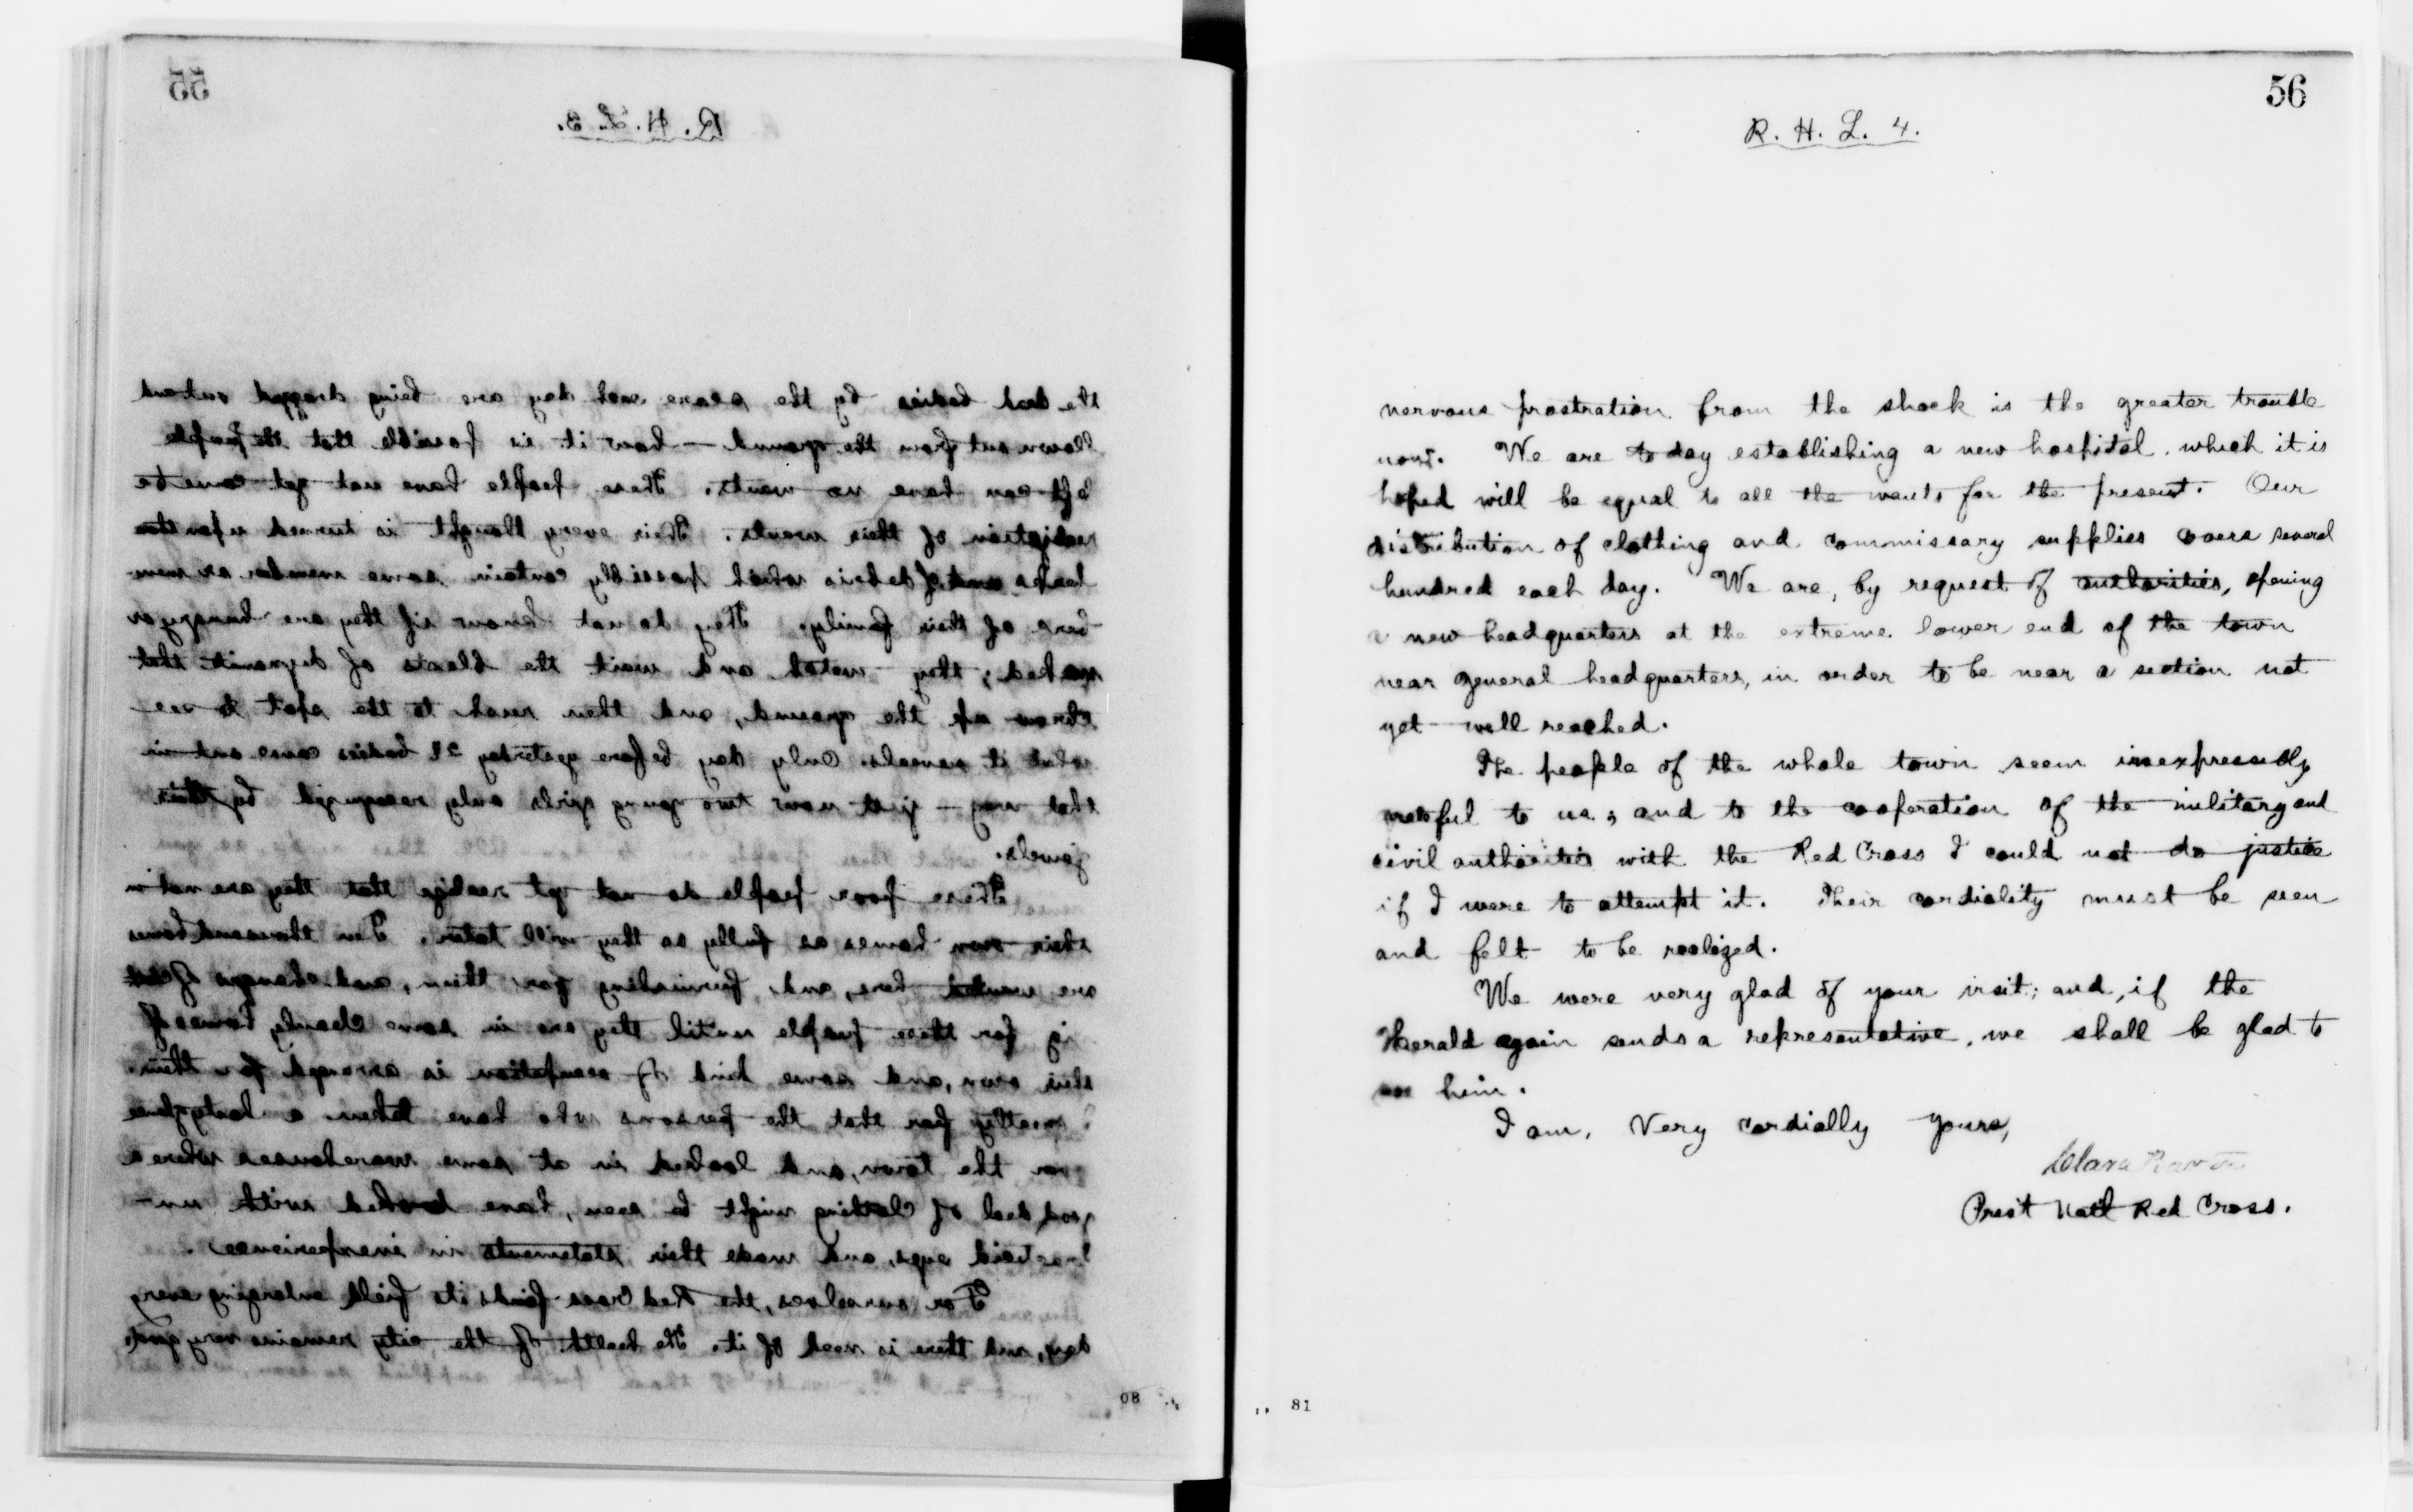 55
R. H. L. 3.
the dead bodies by the score each day are being dragged out and
blown out from the ground — how it is possible that the people
left can have no wants. These people have not yet come to
realization of their wants. Their every thought is turned upon the
heaps of debris which possibly contain some member or mem-
bers of their family. They do not know if they are hungry or
naked; they watch and wait the blasts of dynamite that
throw up the ground, and then rush to the spot to see
what it reveals. Only day before yesterday 28 bodies came out in
that way — just now two young girls only recognized by their
jewels.
These poor people do not yet realize that they are not in
their own homes as fully as they will later. Ten thousand homes
are wanted here, and furnishing for them, and changes of cloth
ing for these people until they are in some cleanly homes of
their own, and some kind of occupation is arranged for them.
I greatly fear that the persons who have taken a hasty glance
over the town, and looked in at some warehouses where a
good deal of clothing might be seen, have looked with un-
practised eyes, and made their statements in inexperience.
For ourselves, the Red Cross finds its field enlarging every
day, and there is need of it. The health of the city remains very good,
80
56
R. H. L. 4.
nervous prostration from the shock is the greater trouble
now. We are today establishing a new hospital, which it is
hoped will be equal to all the wants for the present. Our
distribution of clothing and commissary supplies covers several
hundred each day. We are, by request of authorities, opening
a new headquarters at the extreme lower end of the town
near general headquarters, in order to be near a section not
yet well reached.
The people of the whole town seem inexpressibly
to us; and to the cooperation of the military and
civil authorities with the Red Cross I could not do justice
if I were to attempt it. Their cordiality must be seen
and felt to be realized.
We were very glad of your visit; and, if the
Herald again sends a representative, we shall be glad to
see him.
I am, Very cordially yours,
Clara Barton
Pres't Nat'l Red Cross.
81